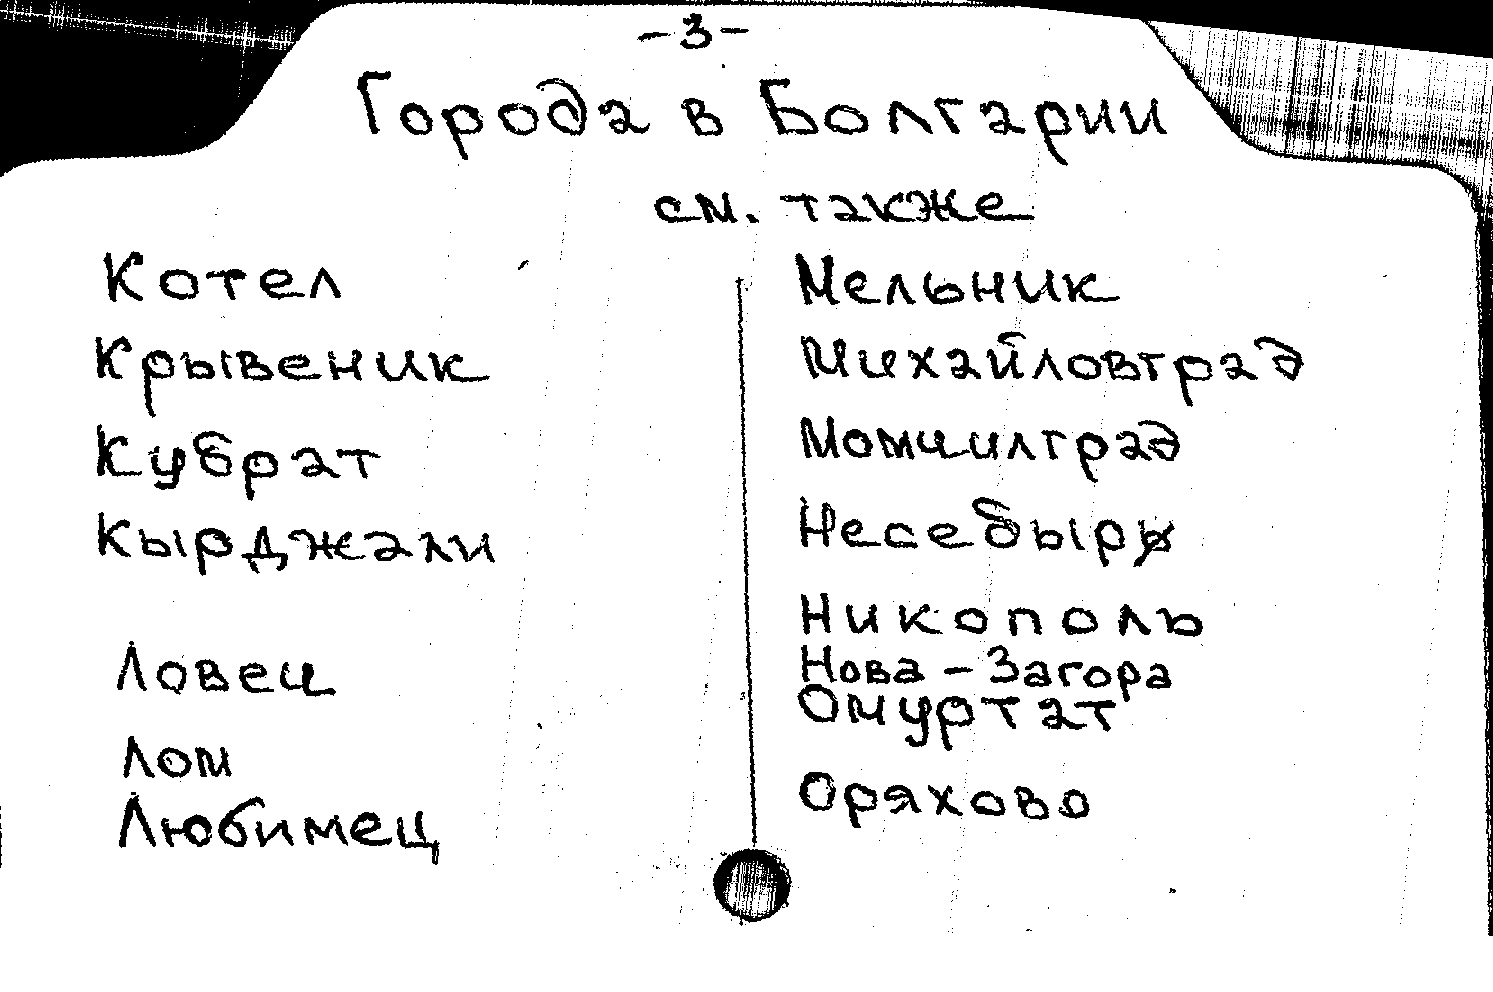 -3-
Города в Болгарии
см. также
Котел
Крывеник
Кубрат
Кырджали
Ловец
Лом
Любимец
Мельник
Михайловград
Момчилград
Несебыр
Никополь
Нова-Загора
Омуртат
Оряхово